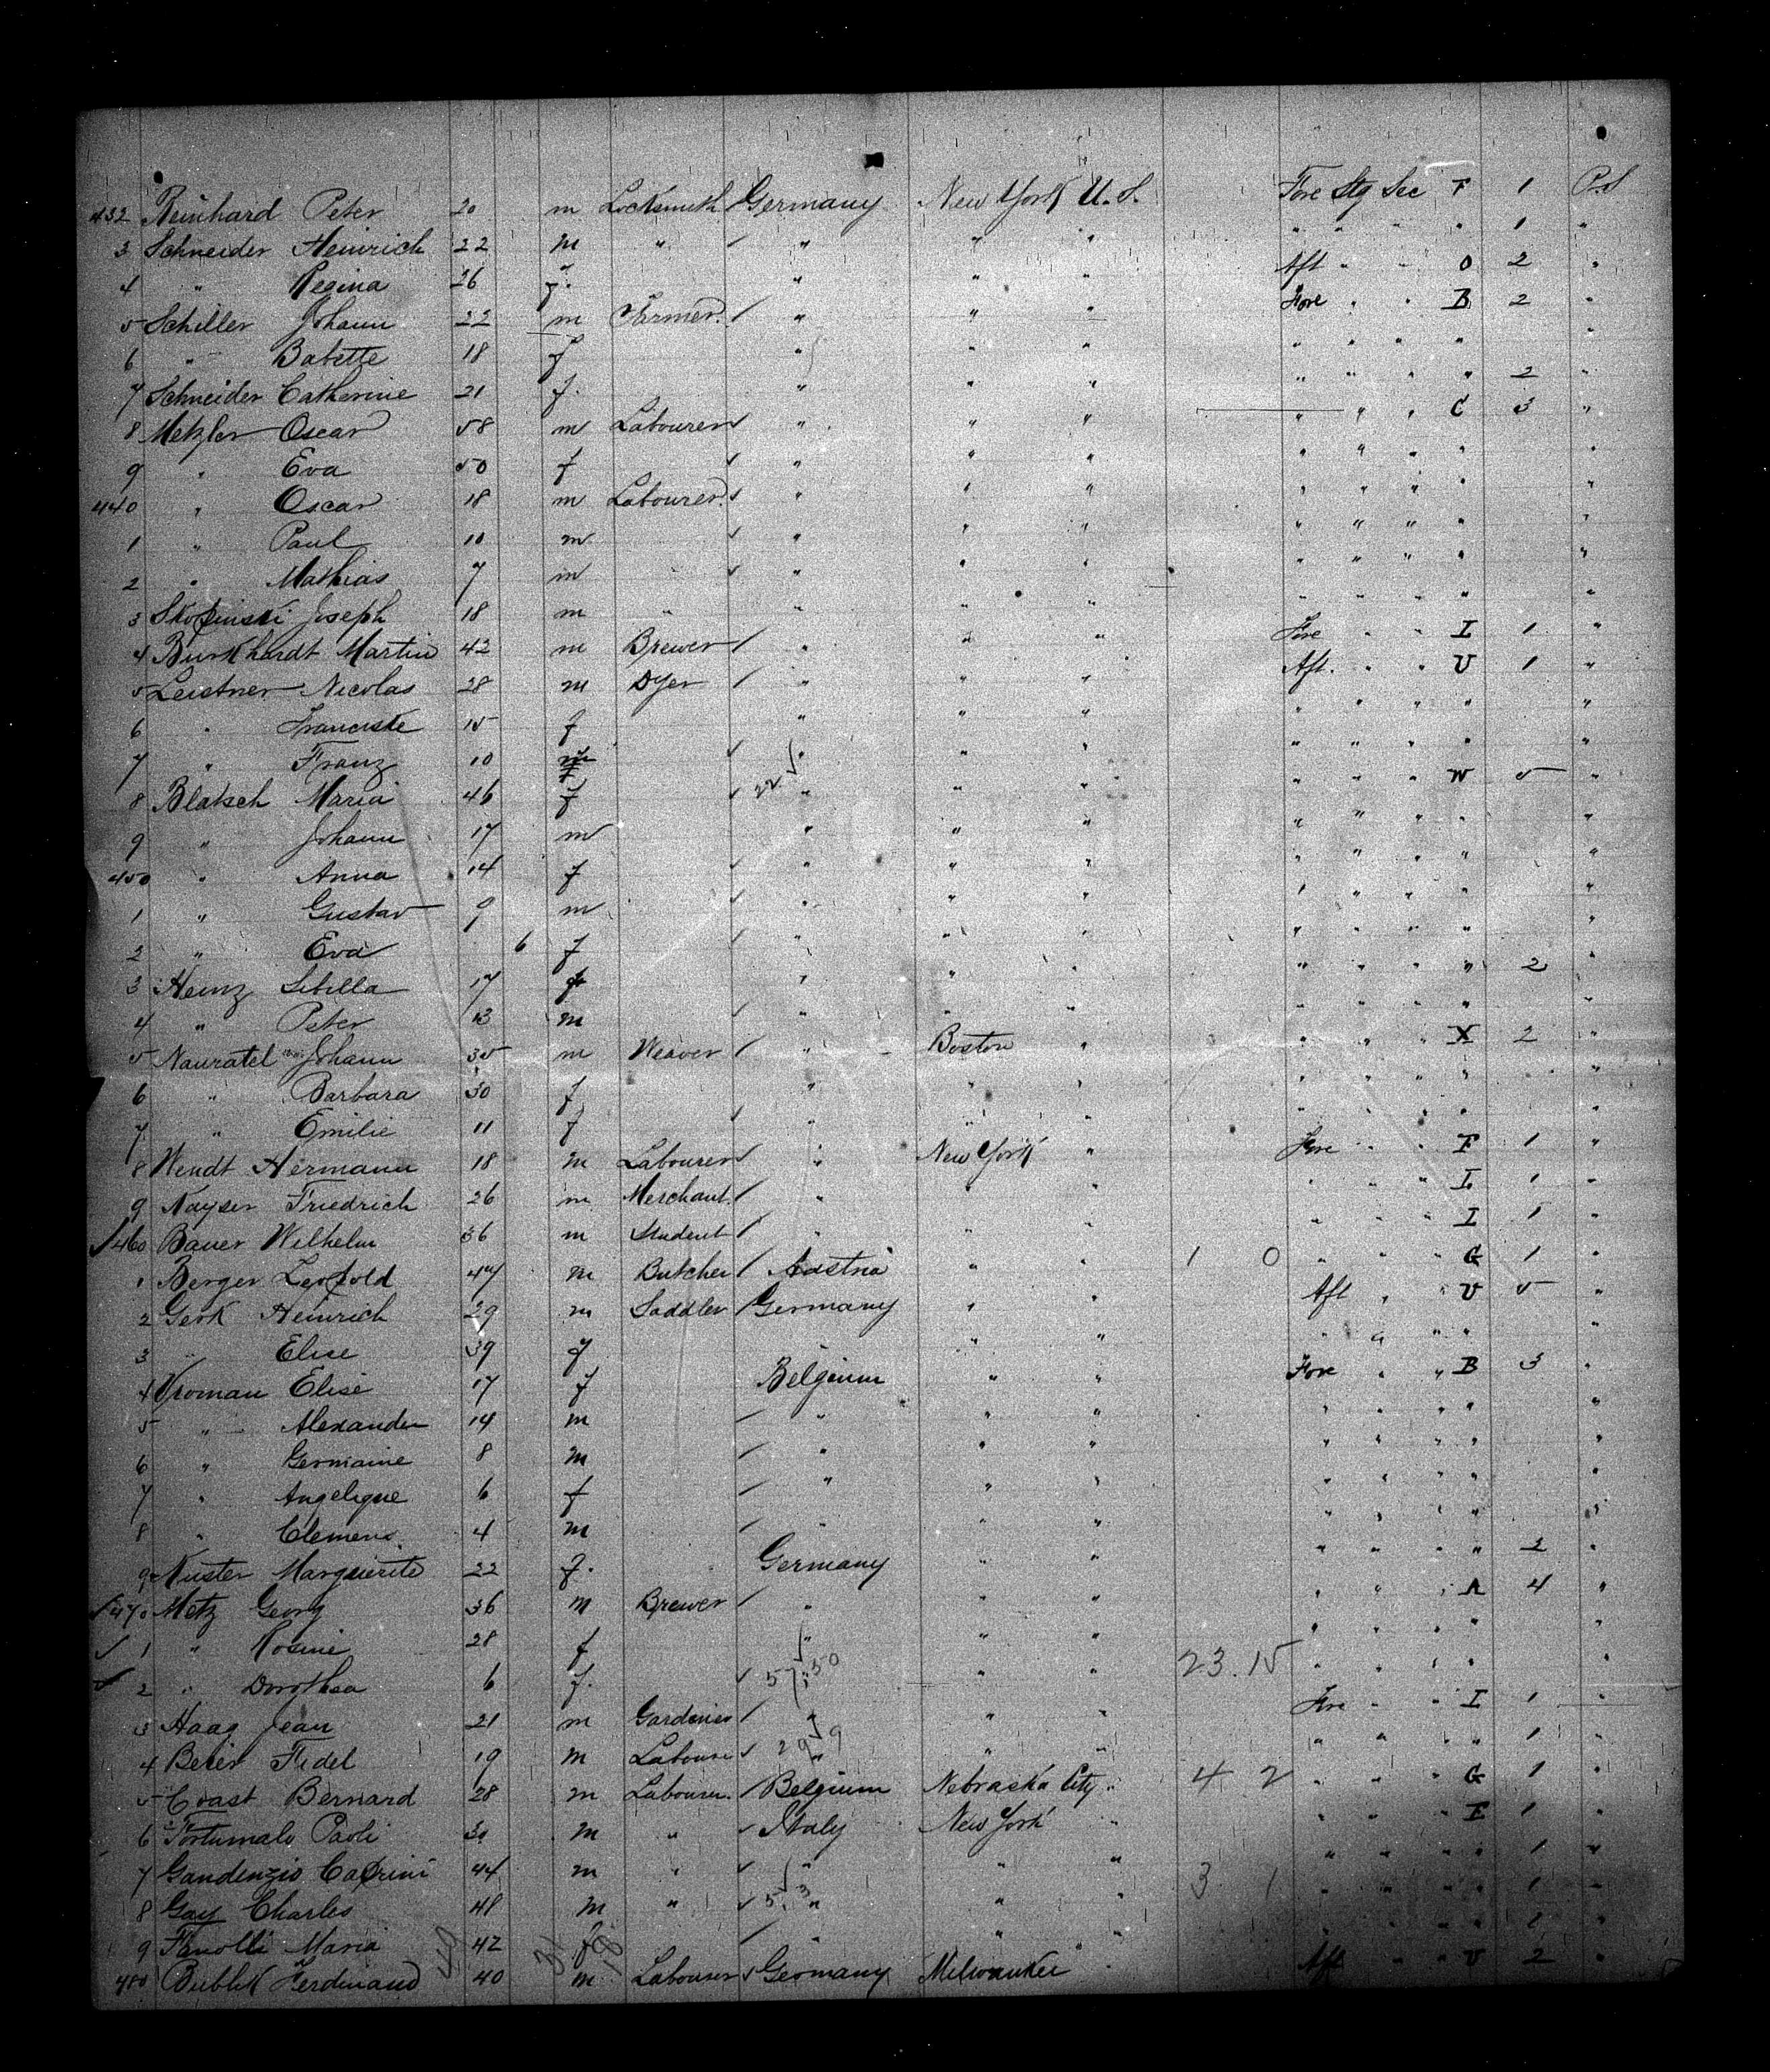 432 Reinhard Peter 20 m Locksmith / Germany New York U.S. Fore Stg Sec F 1 P.S
3 Schneider Heinrich 22 m " / " " " " " " " 1 "
4 " Regina 26 f. " " " Aft " " O 2 "
5 Schiller Johann 22 m Farmer / " " " Fore " " B 2 "
6 " Babette 18 f " " " " " " " "
7 Schneider Catherine 21 f. " " " " " " " 2 "
8 Metzler Oscar 58 m Labourer ✓ " " " " " " C 3 "
9 " Eva 50 f ✓ " " " " " " " "
440 " Oscar 18 m Labourer ✓ " " " " " " " "
1 " Paul 10 m ✓ " " " " " " " "
2 " Mathias 7 m ✓ " " " " " " " "
3 Joseph 18 m " " " " " " " " "
4 Burkhardt Martin 42 m Brewer / " " " Fore " " I 1 "
5 Leistner Nicolas 28 m Dyer / " " " Aft. " " U 1 "
6 " 15 f " " " " " " " "
7 " Franz 10 f ✓ " " " " " " " "
8 Blatsch Maria 46 f ✓ 22 ✓ " " " " " " W 5 "
9 " Johann 17 m " " " " " " " "
450 " Anna 14 f ✓ " " " " " " " "
1 " Gustav 9 m ✓ " " " " " " " "
2 " Eva 6 f ✓ " " " " " " " "
3 Heinz Sibilla 17 f " " " " " " " 2 "
4 " Peter 13 m ✓ " " " " " " " "
5 Nauratel Johann 35 m Weaver / " Boston " " " " X 2 "
6 " Barbara 30 f " " " " " " " "
7 " Emilie 11 f ✓ " " " " " " " "
8 Wendt Hermann 18 m Labourer ✓ " New York " Fore " " F 1 "
9 Kayser Friedrich 26 m Merchant / " " " " " " I 1 "
✓ 460 Bauer Wilhelm 36 m Student / " " " " " " I 1 "
1 Berger Leopold 47 m Butcher / Austria " " 1 0 " " " G 1 "
2 Gerk Heinrich 29 m Saddler / Germany " " Aft " " U 5 "
3 " Elise 39 f " " " " " " "
4 Vroman Elise 17 f Belgium " " Fore " " B 3 "
5 " Alexander 14 m / " " " " " " " "
6 " Germaine 8 m / " " " " " " " "
7 " Angelique 6 f / " " " " " " " "
8 " Clemens 4 m / " " " " " " " "
9 Kuster Marguerite 22 f. Germany " " " " " " 2 "
✓ 470 Metz Georg 36 m Brewer / " " " " " " A 4 "
✓ 1 " Rosine 28 f ✓ " " " " " " " "
✓ 2 " Dorothea 6 f. ✓ 57.50 " " 23.15 " " " " "
3 Haag Jean 21 m Gardener / " " " Fore " " I 1 "
4 Beier Fidel 19 m Labourer ✓ 29 9 " " " " " " 1 "
5 Coast Bernard 28 m Labourer / Belgium Nebraska City " 4 2 " " " G 1 "
6 Paoli m " ✓ Italy New York " " " " E 1 "
7 Gaudenzio Caprini 44 m " ✓ " " " " " " " 1 "
8 Gay Charles 48 m " ✓ 5. 3 " " " 3 1 " " " " 1 "
9 Maria 42 f / " " " " " " " 1 "
480 Ferdinand 40 m Labourer ✓ Germany Milwaukee " Aft " " U 2 "